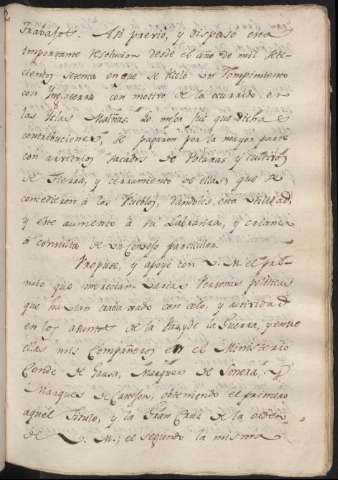 trabajos. Así previó, y dispuso esta
importante resolucion desde el año de mil sete-
cientos setenta en que se rezeló un rompimiento
con Inglaterra con motivo de lo ocurrido en
las Islas Malvinas. Lo mejor fué que dichas
contribuciones, se pagaron por la mayor parte
con arvitrios sacados de Voturas y cultivos
de tierra, y cerramiento de ellas, que se
concedieron á los Pueblos, dandoles esta utilidad,
y este aumento á su Labranza, y crianza
á consulta de un Consejo particular.
Propuse, y apoyé con V. M. el pre-
mio que merecian varias Personas politicas
que havian trabajado con celo, y actividad
en los asuntos de la Paz y de la Guerra, y entre
ellas mis Compañeros en el Ministerio
Conde de Gausa, Marques de Sonora, y
Marques de Castejon, obteniendo el primero
aquel Titulo, y la Gran Cruz de la orden
de V. M.; el segundo la misma